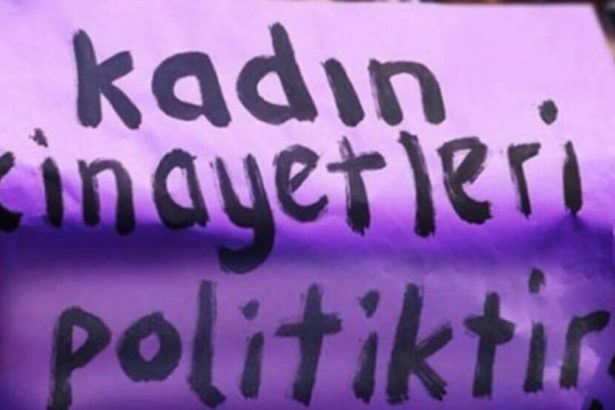 kadın
cinayetleri
politiktir